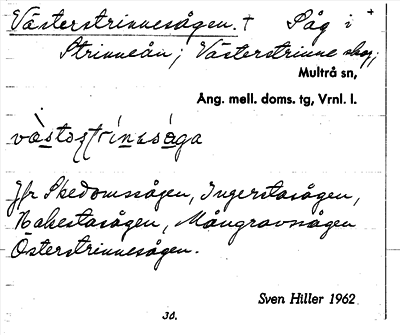 Västerstrinnesågen. † Såg i +
Strinneån; Västerstrinne skog,
Multrå sn,
Ång. mell. doms. tg, Vrnl. l.
västostrinesåga
Jfr Skedomssågen, Ingerstasågen,
Bakestasågen, Mångravssågen
Österstrinnesågen.
Sven Hiller 1962
30.